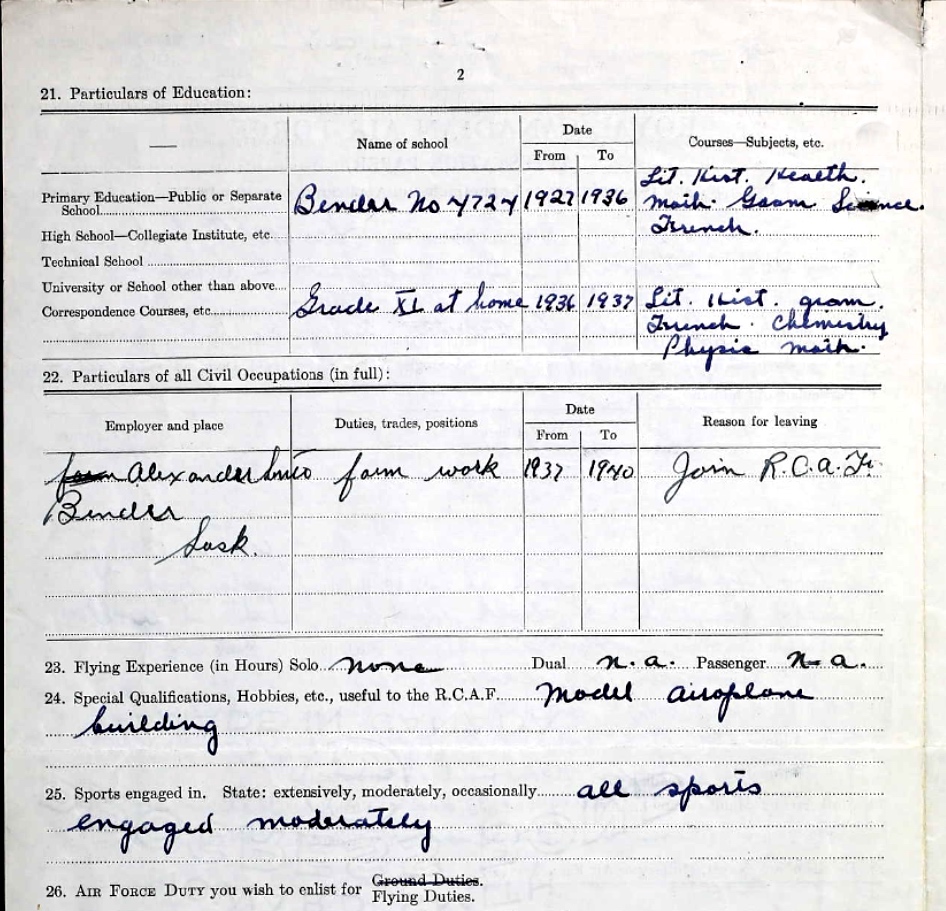 2
21. Particulars of Education:
Name of school
Date
From To
Courses—Subjects, etc.
Primary Education—Public or Separate School
Bender No 4724 1927 1936
Lit. Hist. Health.
Math. Gram Science.
French.
High School—Collegiate Institute, etc.
Technical School
University or School other than above
Correspondence Courses, etc.
Grade XI at home 1936 1937
Lit. Hist. gram.
French. Chemistry
Physic math.
22. Particulars of all Civil Occupations (in full):
Employer and place
Duties, trades, positions
Date
From To
Reason for leaving
Alexander farm work 1937 1940 Join R.C.A.F.
Bender
Sask.
23. Flying Experience (in Hours) Solo none Dual n.a. Passenger n a.
24. Special Qualifications, Hobbies, etc., useful to the R.C.A.F. Model airoplane
building
25. Sports engaged in. State: extensively, moderately, occasionally all sports
engaged moderately
26. AIR FORCE DUTY you wish to enlist for Ground Duties.
Flying Duties.